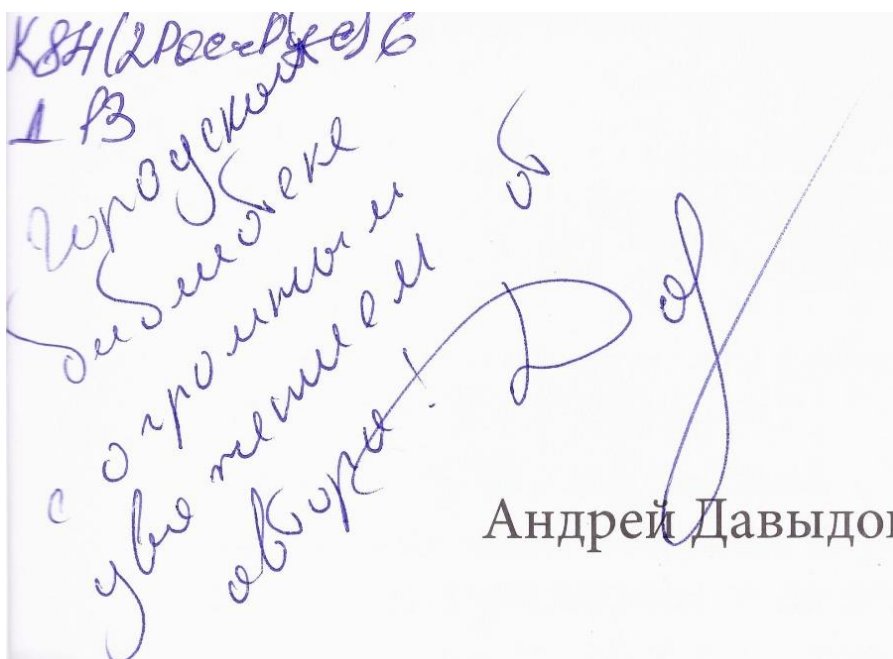 К84(2Рос=Рус)6
Городской
библиотеке
с огромным
уважением от
автора!
Андрей Давыдов